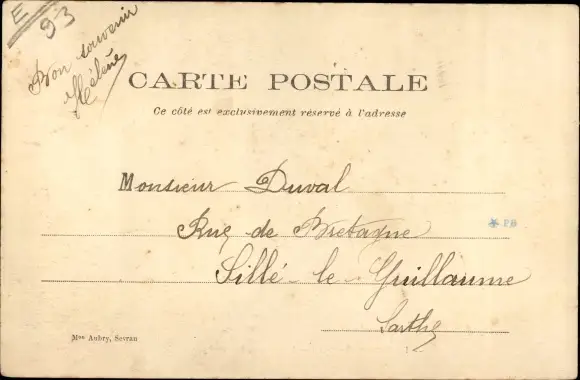 E
93
Bon souvenir
Hélène
CARTE POSTALE
Ce côté est exclusivement réservé à l'adresse
Monsieur Duval
Rue de Bretagne
Sillé-le-Guillaume
Sarthe
PB
Mon Aubry, Sevran